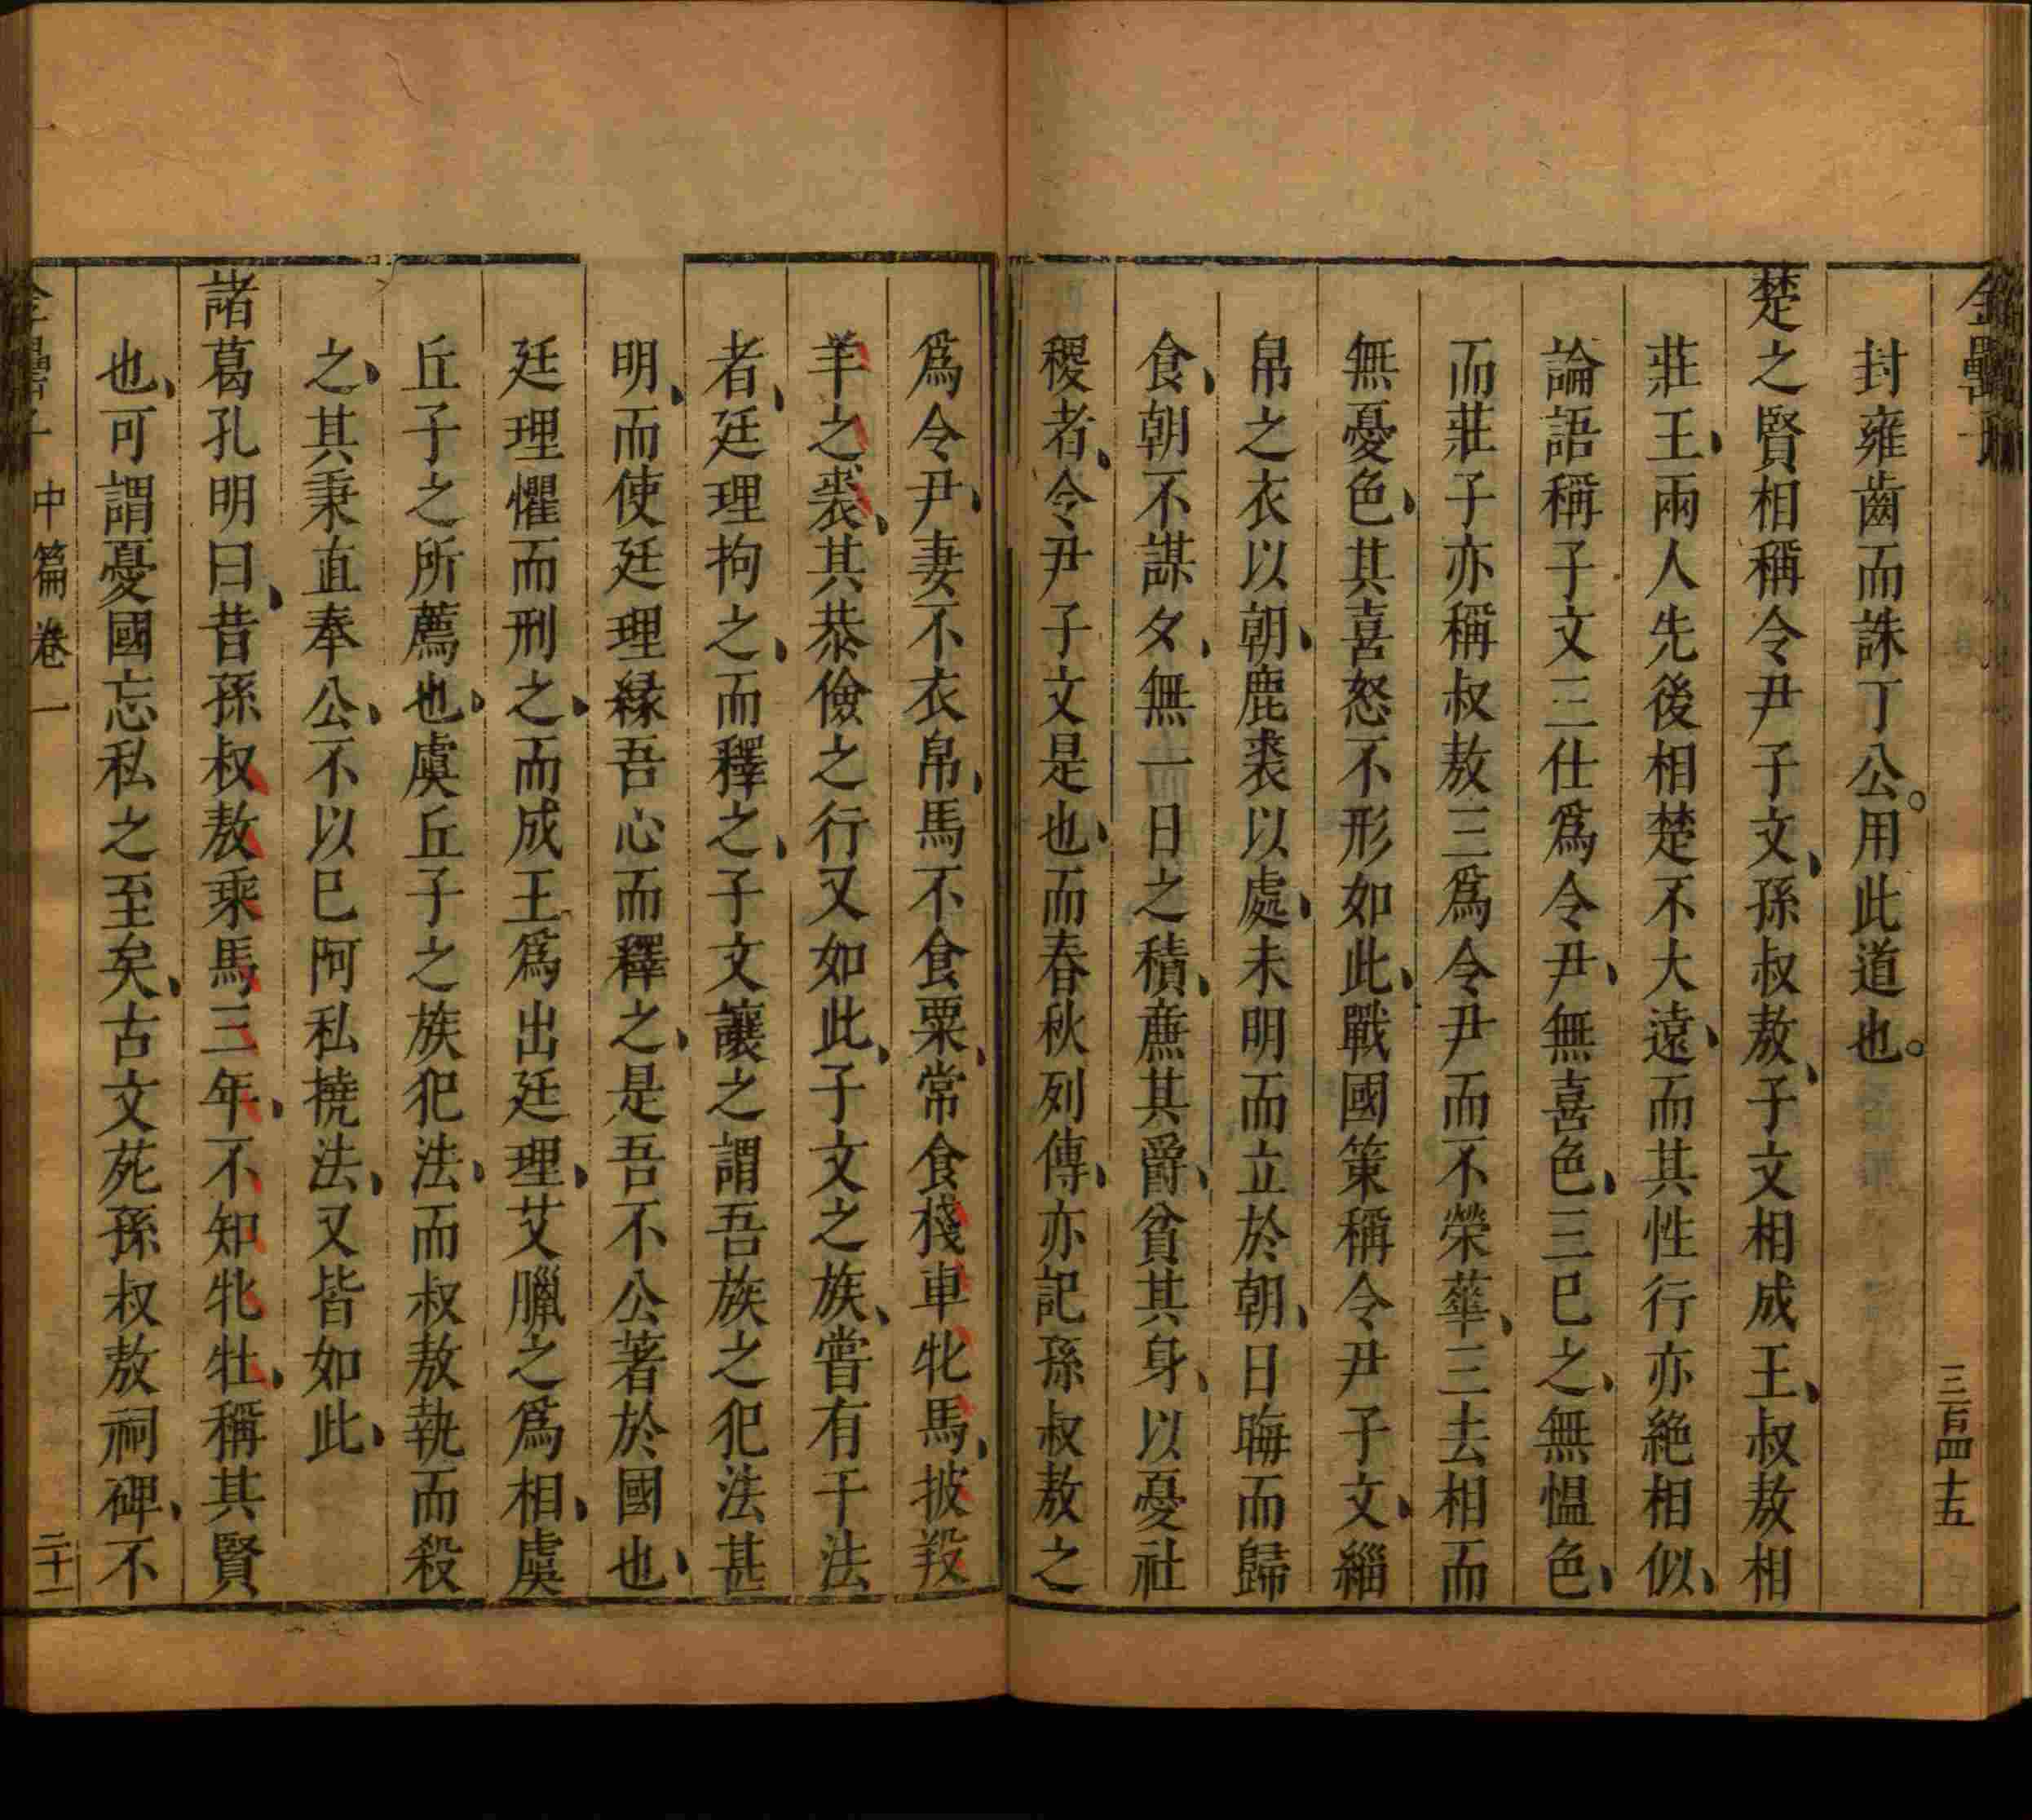 封雍齒而誅丁公。用此道也。
楚之賢相稱令尹子文、孫叔敖、子文相成王、叔敖相
莊王、兩人先後相楚不大遠、而其性行亦絶相似、
論語稱子文三仕爲令尹、無喜色、三已之、無慍色、
而莊子亦稱叔敖三爲令尹而不榮華、三去相而
無憂色、其喜怒不形如此、戰國策稱令尹子文、緇
帛之衣以朝、鹿裘以處、未明而立於朝、日晦而歸
食、朝不謀夕、無一日之積、廉其爵、貧其身、以憂社
稷者、令尹子文是也、而春秋列傳、亦記孫叔敖之
爲令尹、妻不衣帛、馬不食粟、常食棧車牝馬、披羖
羊之裘、其恭儉之行又如此、子文之族、嘗有干法
者、廷理拘之、而釋之、子文讓之謂吾族之犯法甚
明、而使廷理緣吾心而釋之、是吾不公著於國也、
廷理懼而刑之、而成王爲出廷理、艾臘之爲相、虞
丘子之所薦也、虞丘子之族犯法、而叔敖執而殺
之、其秉直奉公、不以已阿私撓法、又皆如此、
諸葛孔明曰、昔孫叔敖乘馬三年、不知牝牡、稱其賢
也、可謂憂國忘私之至矣、古文苑孫叔敖祠碑、不
中篇卷一
二十一